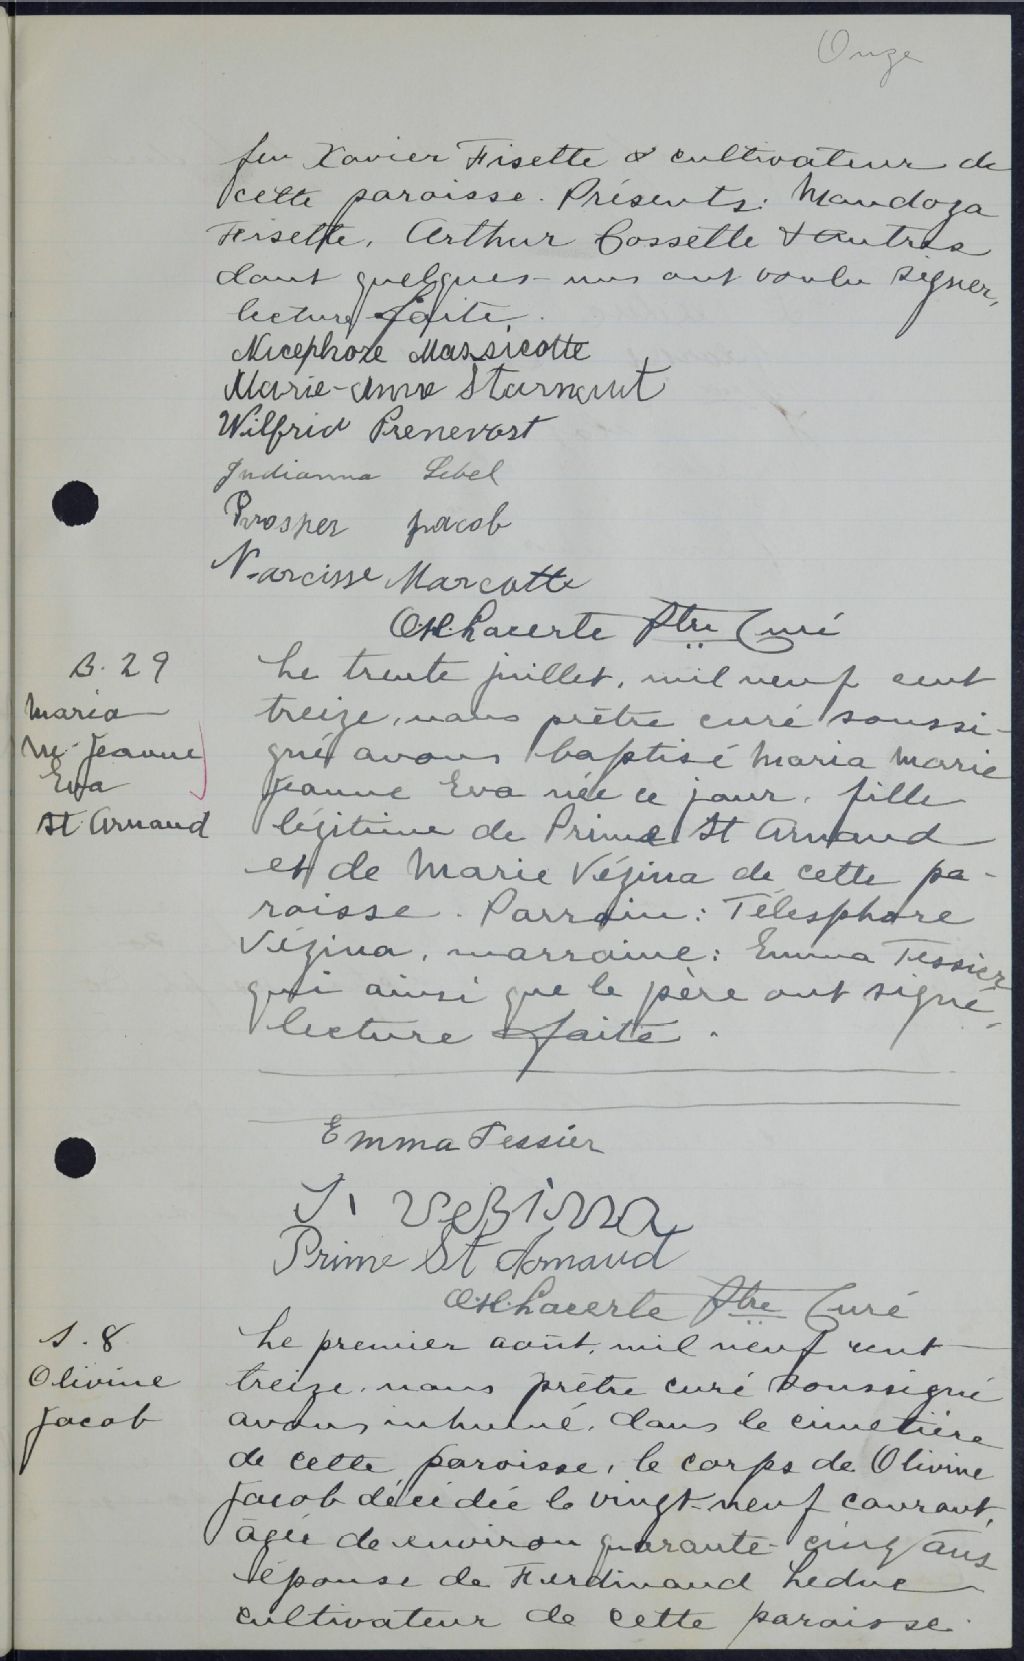 Onze
feu Xavier Fisette & cultivateur de
cette paroisse. Présents: Mandoza
Fisette, Arthur Cossette & autres
dont quelques-uns ont voulu signer,
lecture faite.
Nicephore Massicotte
Marie-Anna Starnaut
Wilfrid Prenevost
Indianna Lebel
Prosper Jacob
Narcisse Marcotte
O.H. Lacerte Ptre Curé
B. 29
Maria
M-Jeanne
Eva
St Arnaud
Le trente juillet, mil neuf cent
treize, nous prêtre curé soussi-
gné avons baptisé Maria Marie
Jeanne Eva née ce jour, fille
légitime de Prime St Arnaud
et de Marie Vézina de cette pa-
roisse. Parrain: Télesphore
Vézina, marraine: Emma Tessier
qui ainsi que le père ont signé,
lecture faite.
Emma Tessier
T. Vesinna
Prime St Arnaud
O.H. Lacerte Ptre Curé
S. 8
Olivine
Jacob
Le premier août, mil neuf cent
treize, nous prêtre curé soussigné
avons inhumé, dans le cimetière
de cette paroisse, le corps de Olivine
Jacob décédée le vingt-neuf courant,
âgée de environ quarante-cinq ans
épouse de Ferdinand Leduc
cultivateur de cette paroisse.